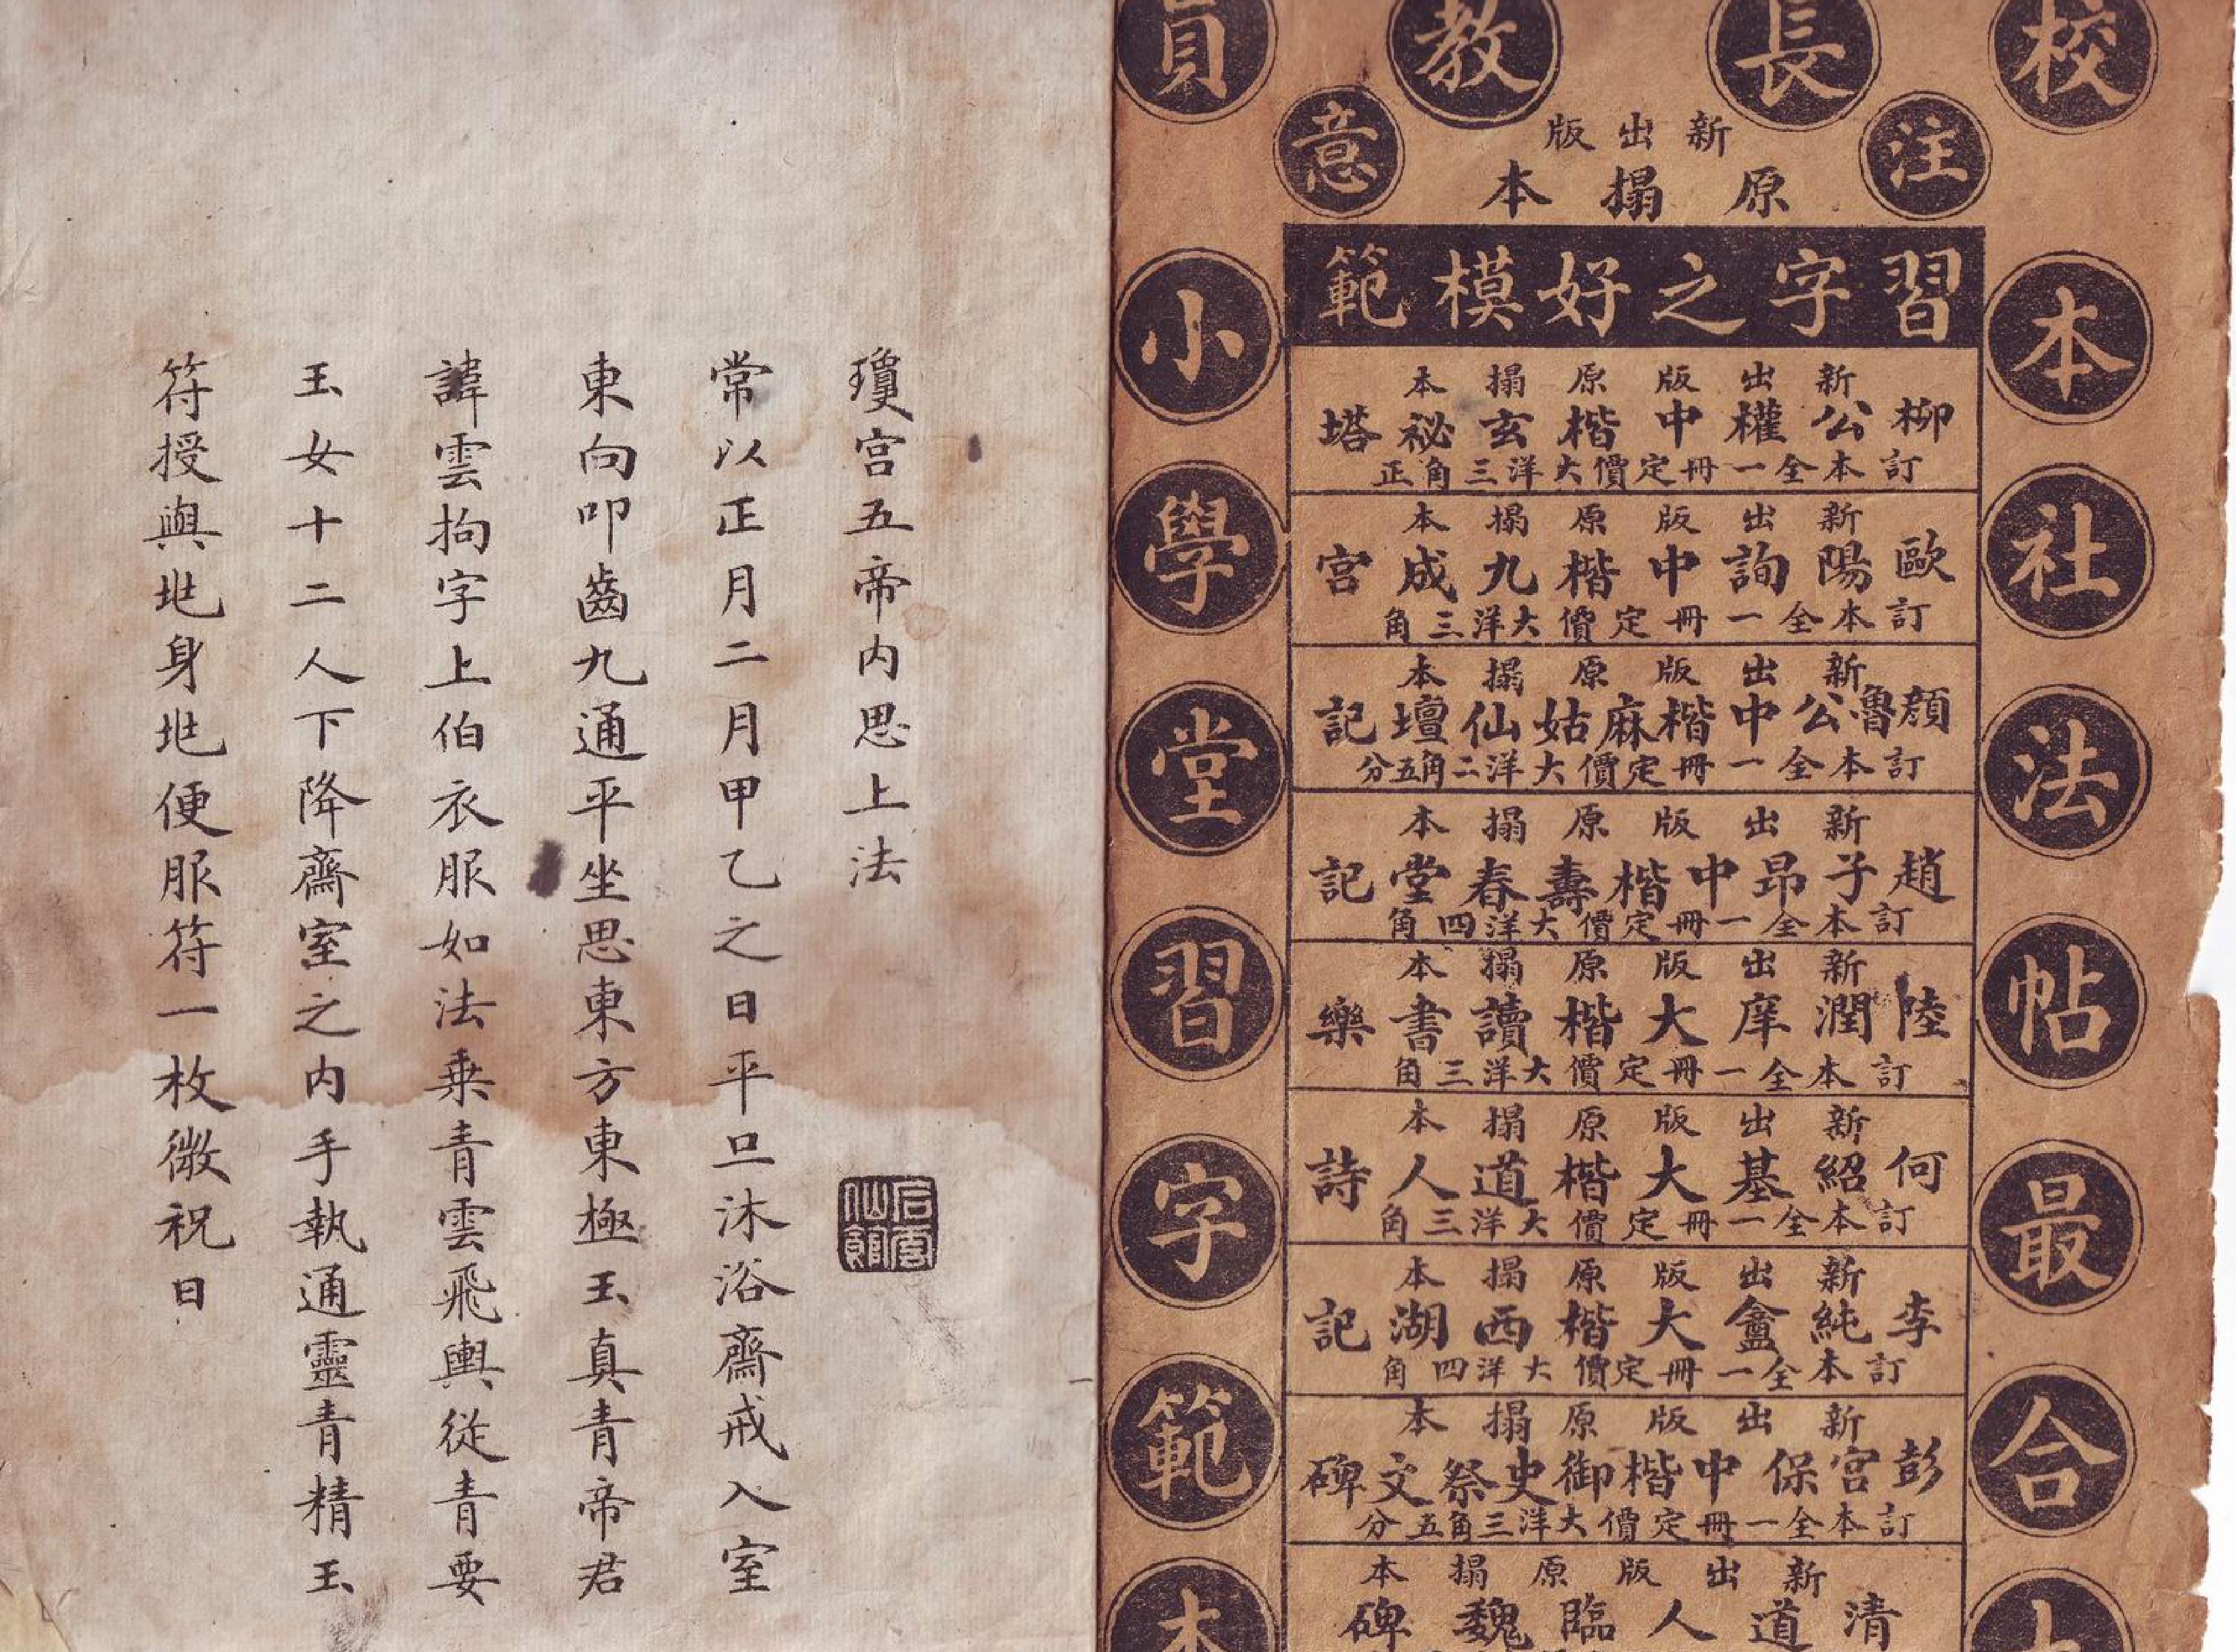 校長教員
注意
新出版
原搨本
習字之好模範
新出版原搨本
柳公權中楷玄祕塔
訂本全一冊定價大洋三角正
新出版原搨本
歐陽詢中楷九成宮
訂本全一冊定價大洋三角
新出版原搨本
顏魯公中楷麻姑仙壇記
訂本全一冊定價大洋二角五分
新出版原搨本
趙子昂中楷壽春堂記
訂本全一冊定價大洋四角
新出版原搨本
陸潤庠大楷讀書樂
訂本全一冊定價大洋三角
新出版原搨本
何紹基大楷道人詩
訂本全一冊定價大洋三角
新出版原搨本
李純盦大楷西湖記
訂本全一冊定價大洋四角
新出版原搨本
彭宮保中楷御史祭文碑
訂本全一冊定價大洋三角五分
新出版原搨本
清道人臨魏碑
本社法帖最合
小學堂習字範本
瓊宮五帝內思上法
常以正月二月甲乙之日平旦沐浴齋戒入室
東向叩齒九通平坐思東方東極玉真青帝君
諱雲拘字上伯衣服如法乘青雲飛輿從青要
玉女十二人下降齋室之內手執通靈青精玉
符授與兆身兆便服符一枚微祝曰